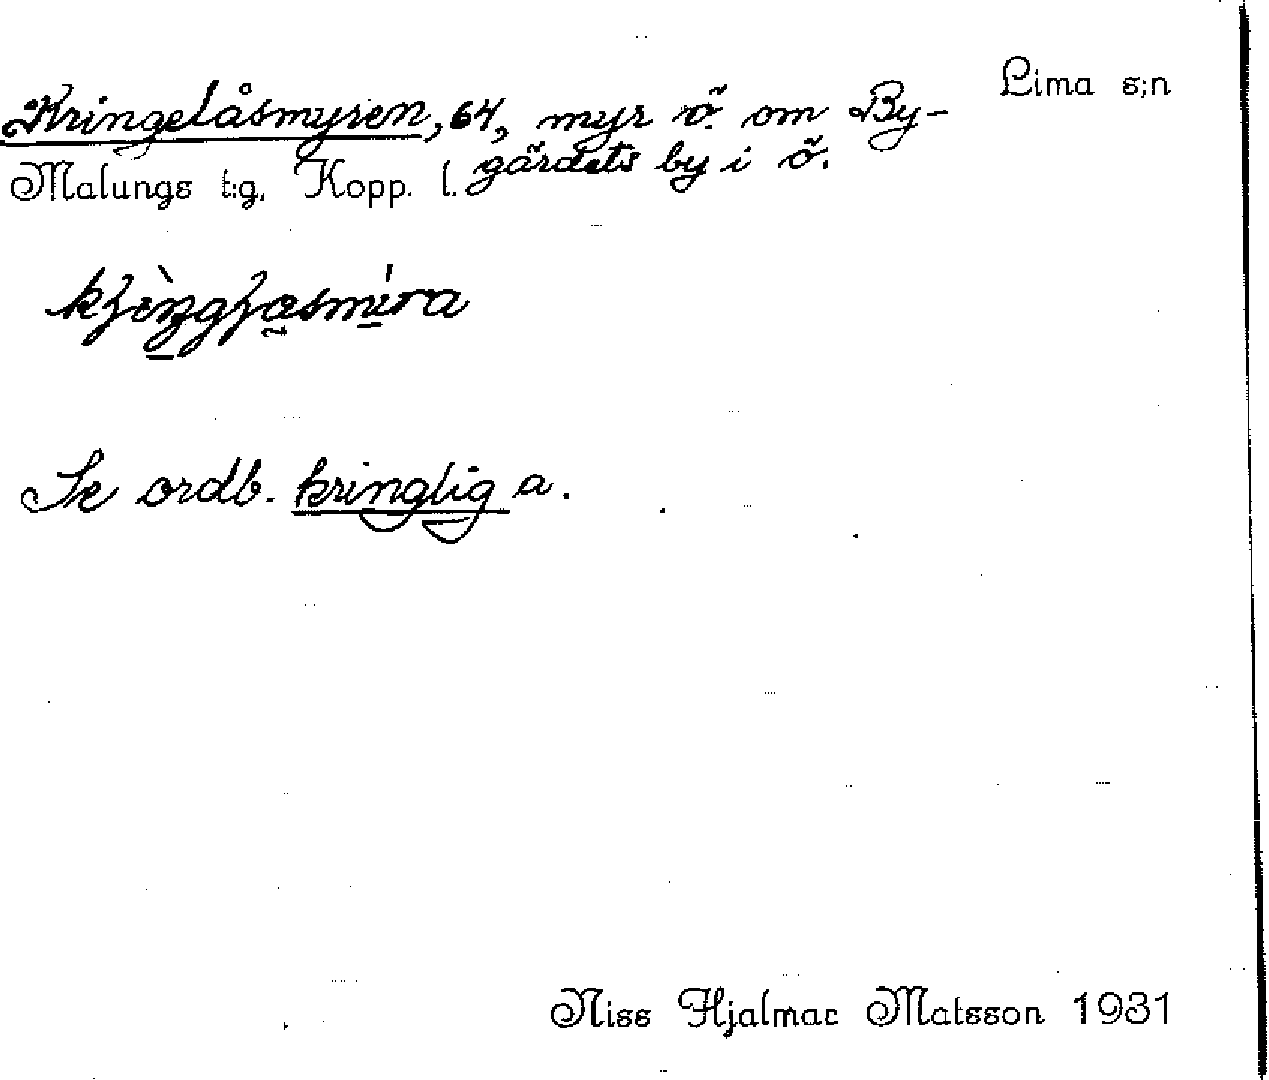 Lima s:n
Kringelåsmyren, 64, myr ö. om By-
gärdets by i ö.
Malungs t:g, Kopp. l.
Se ordb. kringlig a.
Niss Hjalmar Matsson 1931